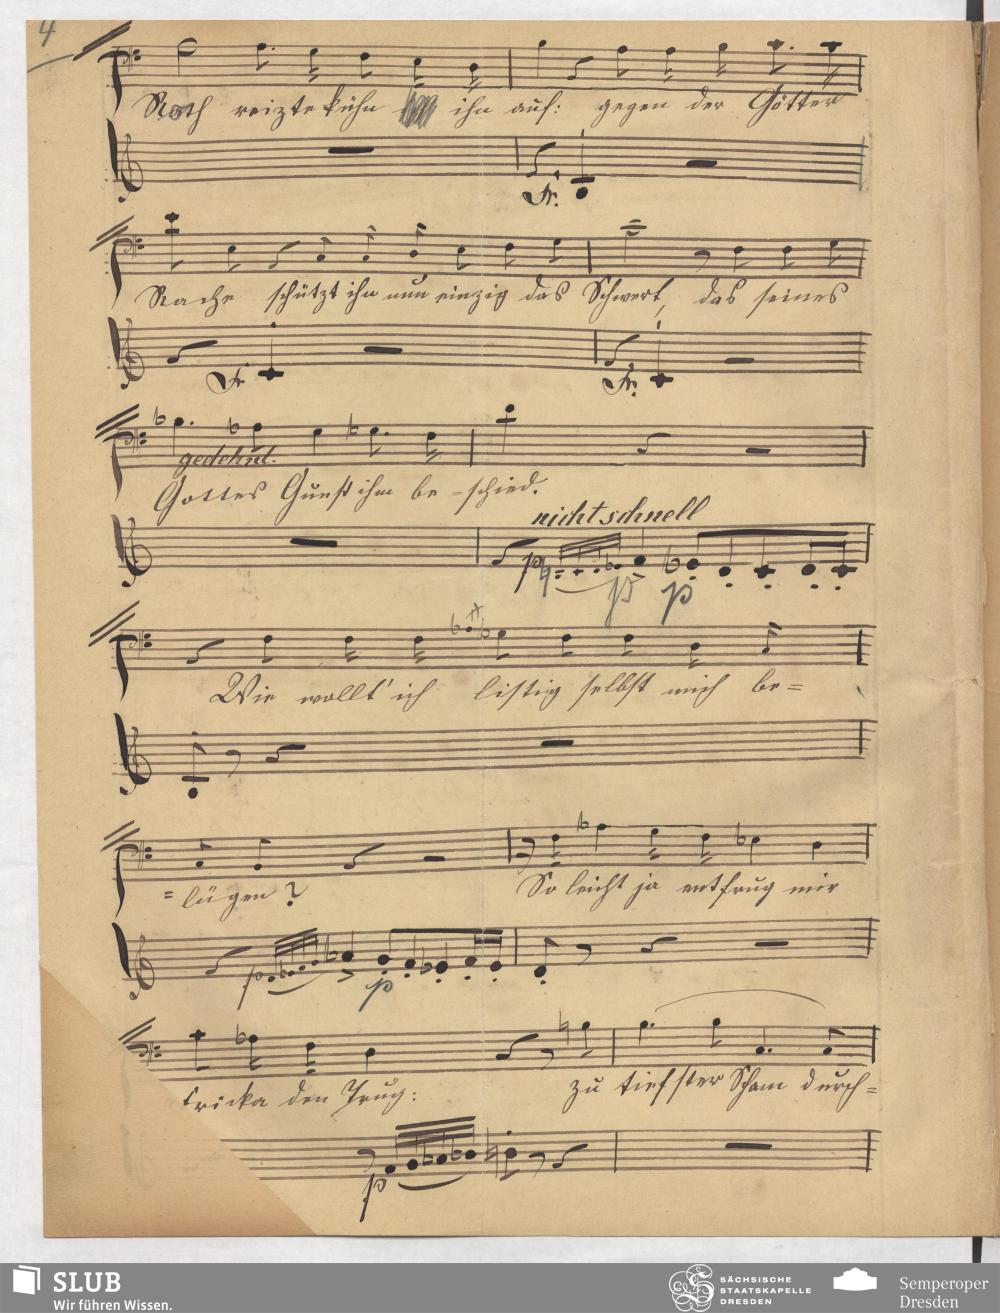 4
Noth reizte kühn ihn auf: gegen der Götter
Fr.
Rache schützt ihn nun einzig das Schwert, das seines
Fr. Fr.
gedehnt.
Gottes Gunst ihm be-schied.
nicht schnell
p p p
Wie wollt' ich listig selbst mich be=
=lügen? So leicht ja entfrug mir
p p
Fricka den Trug: zu tiefster Scham durch=
p
SLUB
Wir führen Wissen.
SÄCHSISCHE
STAATSKAPELLE
DRESDEN
Semperoper
Dresden